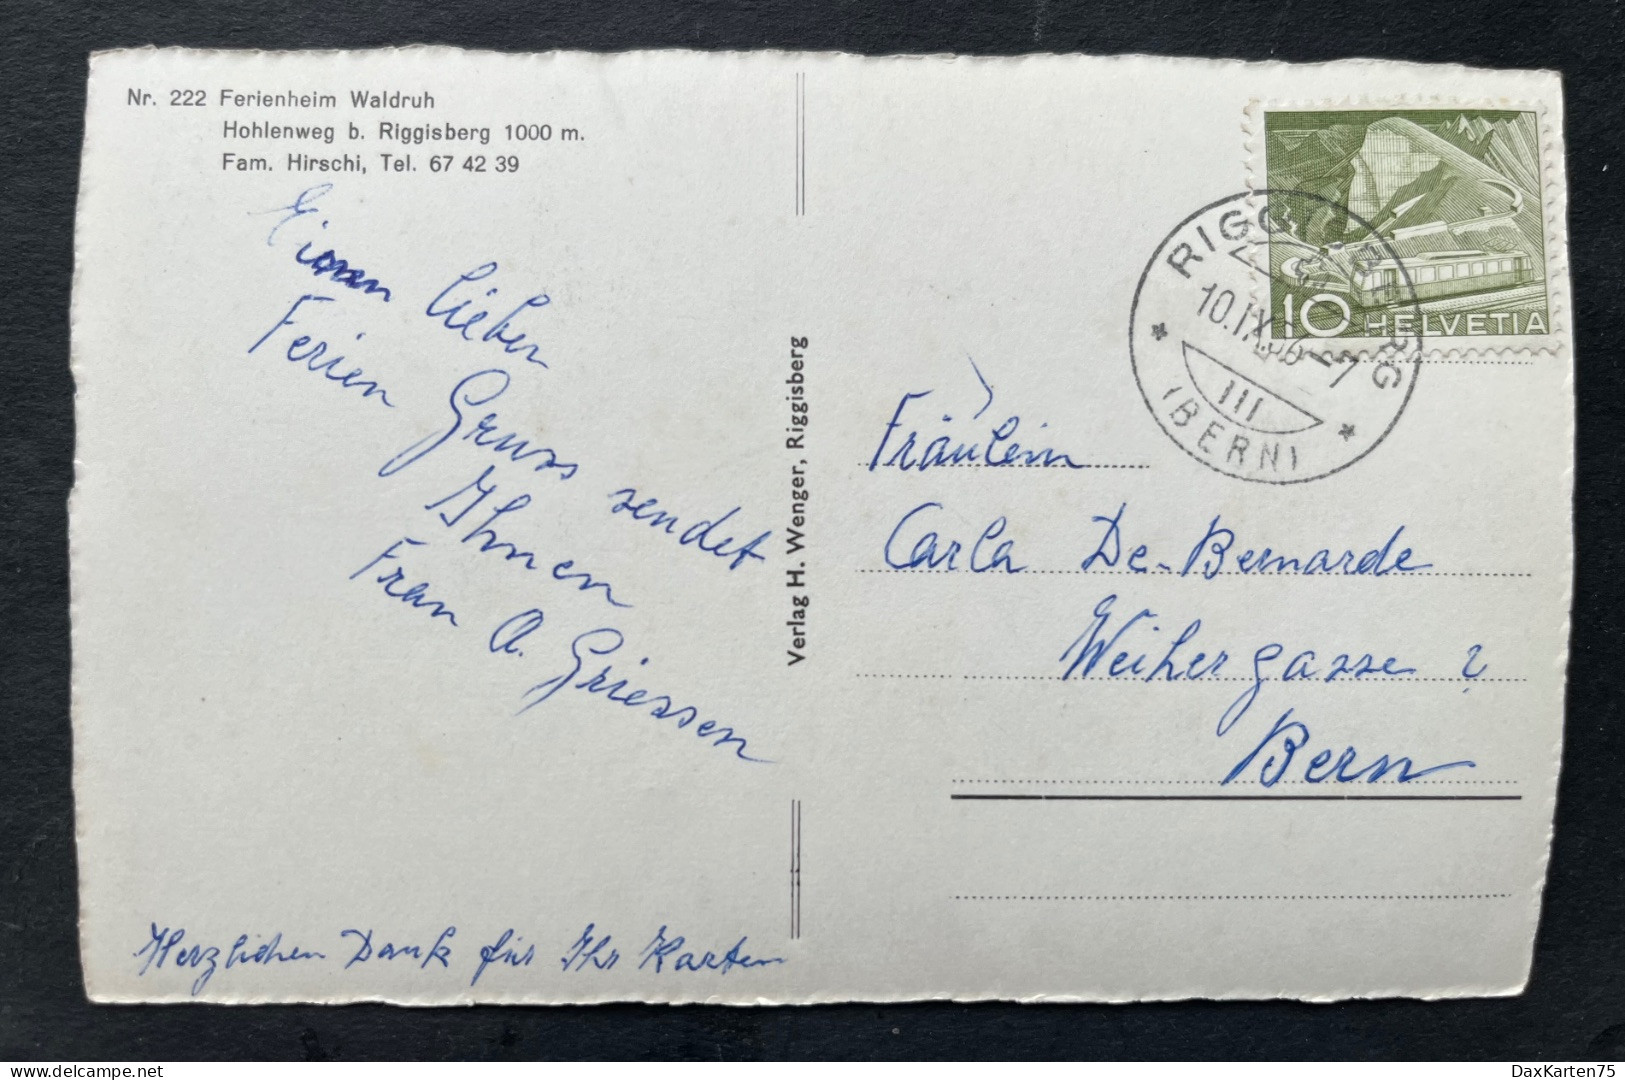 Nr. 222 Ferienheim Waldruh
Hohlenweg b. Riggisberg 1000 m.
Fam. Hirschi, Tel. 67 42 39
Einen lieber
Ferien Gruss sendet
Ihnen
Frau A. Griessen
Herzlichen Dank für Ihr Karten
Verlag H. Wenger, Riggisberg
10 HELVETIA
RIGGISBERG
10.IX.56-7
III
(BERN)
Fräulein
Carla De-Bernarde
Weihergasse ?
Bern
DaxKarten75